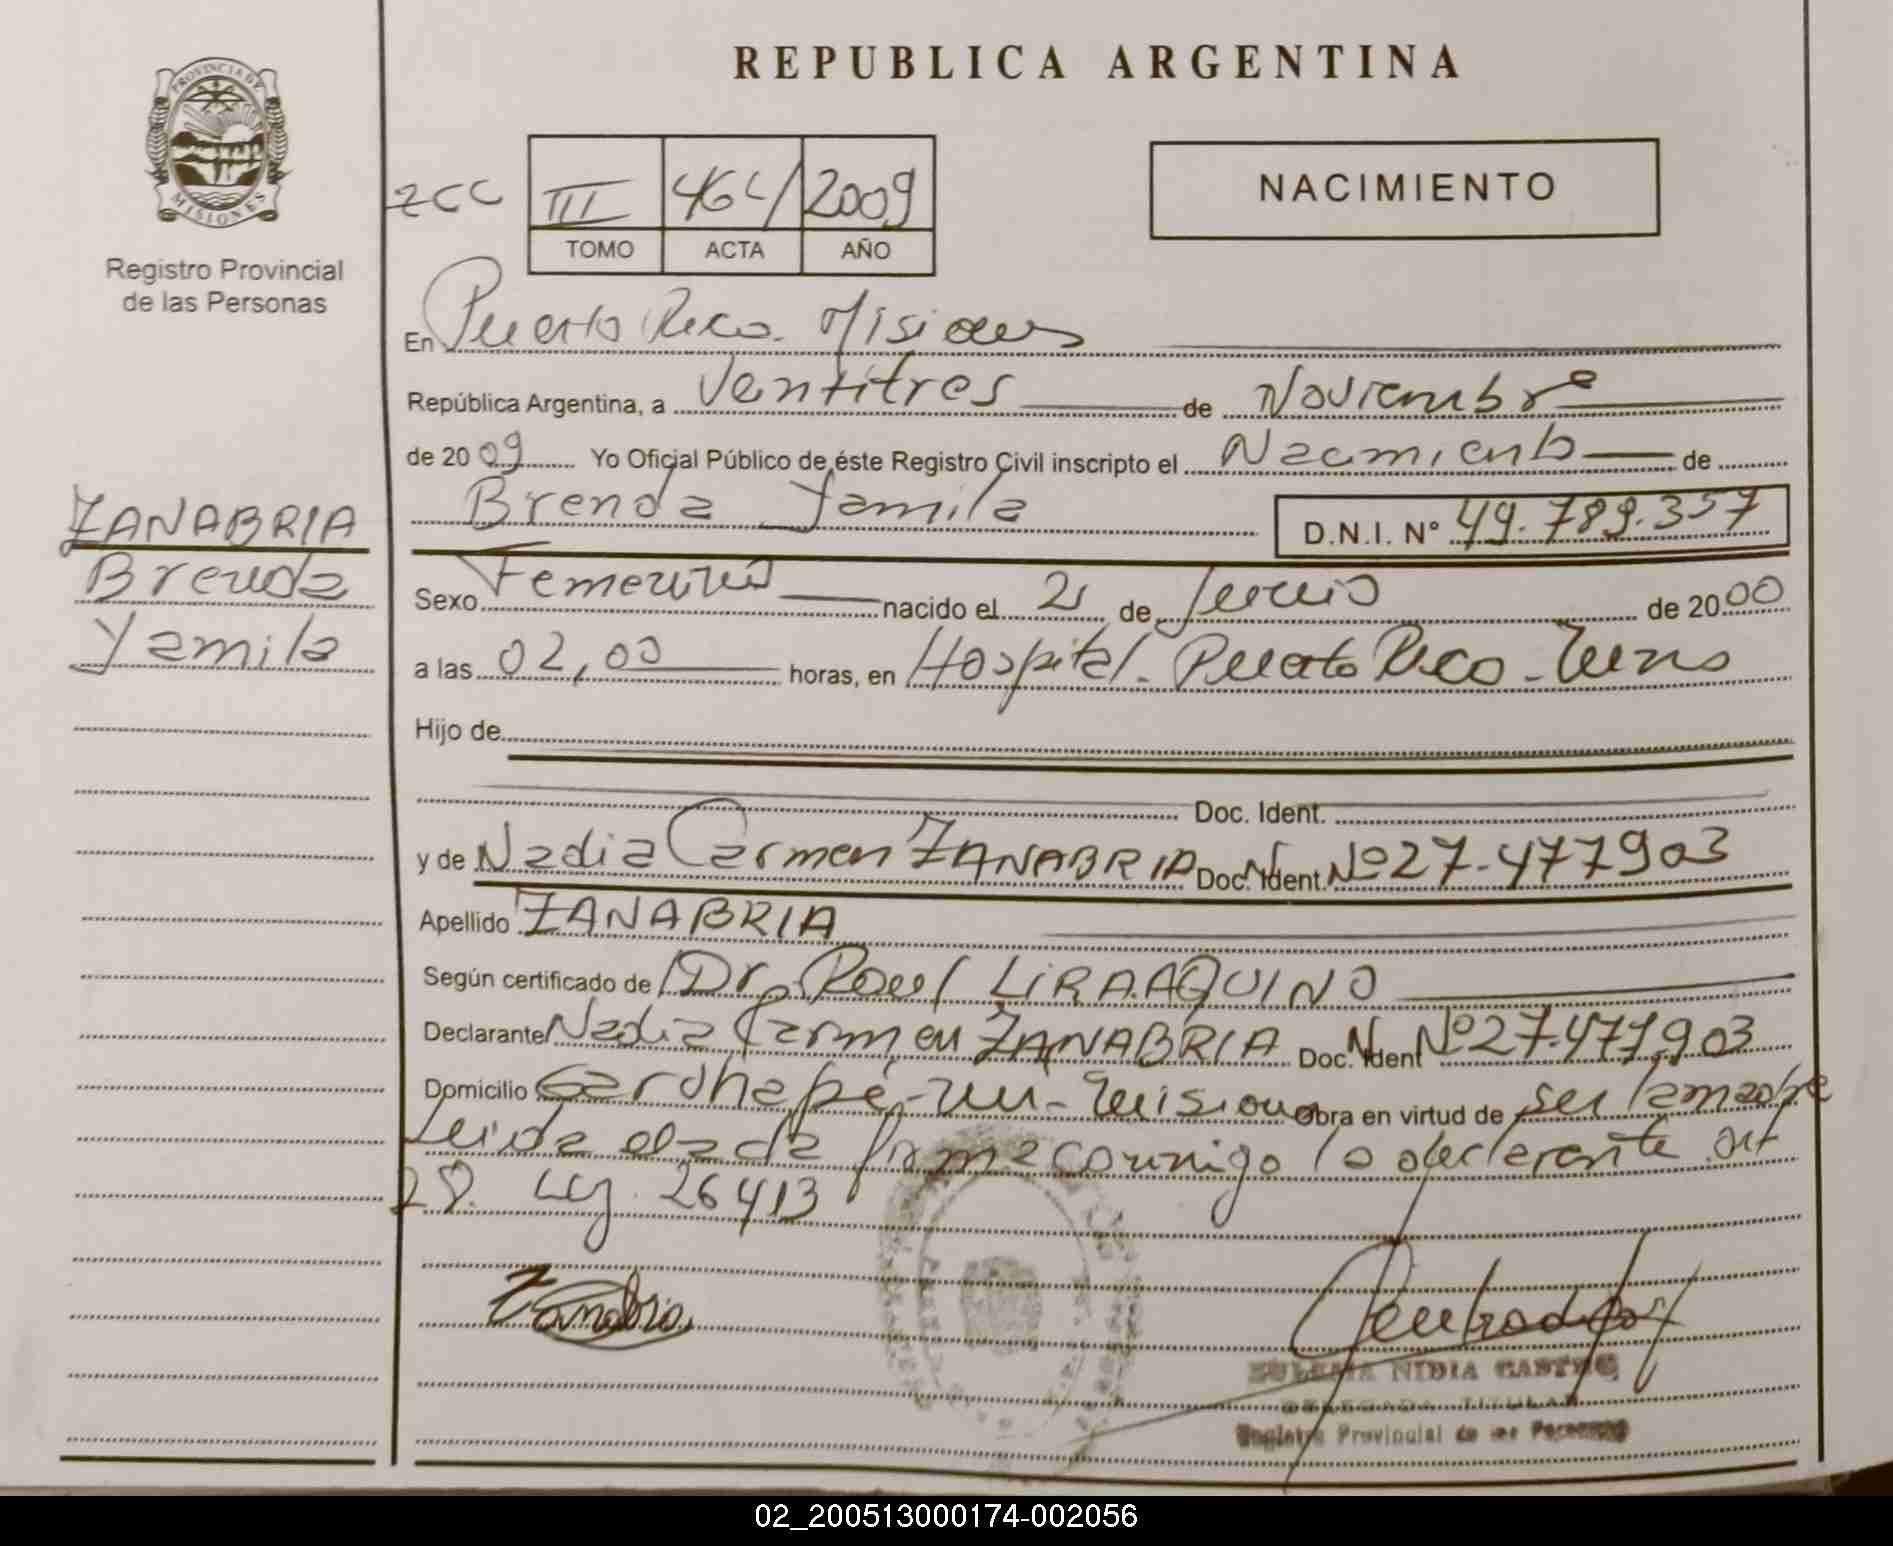 REPUBLICA ARGENTINA
PROVINCIA DE MISIONES
Registro Provincial
de las Personas
NACIMIENTO
III 464/ 2009
TOMO ACTA AÑO
En Puerto Rico. Misiones
República Argentina, a Ventitres de Noviembre
de 2009 Yo Oficial Público de éste Registro Civil inscripto el Nacimiento de
Brenda Yamila D.N.I. Nº 49.789.357
ZANABRIA
Brenda
Yamila
Sexo Femenino nacido el 21 de Junio de 2000
a las 02,00 horas, en Hospital. Puerto Rico - Mnes
Hijo de
Doc. Ident.
y de Nadia Carmen ZANABRIA Doc. Ident. Nº 27.477903
Apellido ZANABRIA
Según certificado de Dr. Raul LIRA AQUINO
Declarante Nadia Carmen ZANABRIA Doc. Ident Nº 27.477.903
Domicilio Garuhapé - Misiones obra en virtud de ser la madre
Leida el acta firma conmigo la declarante art
28. Ley. 26413
Zanabria
NIDIA CASTRO
DELEGADA TITULAR
Registro Provincial de las Personas
02_200513000174-002056